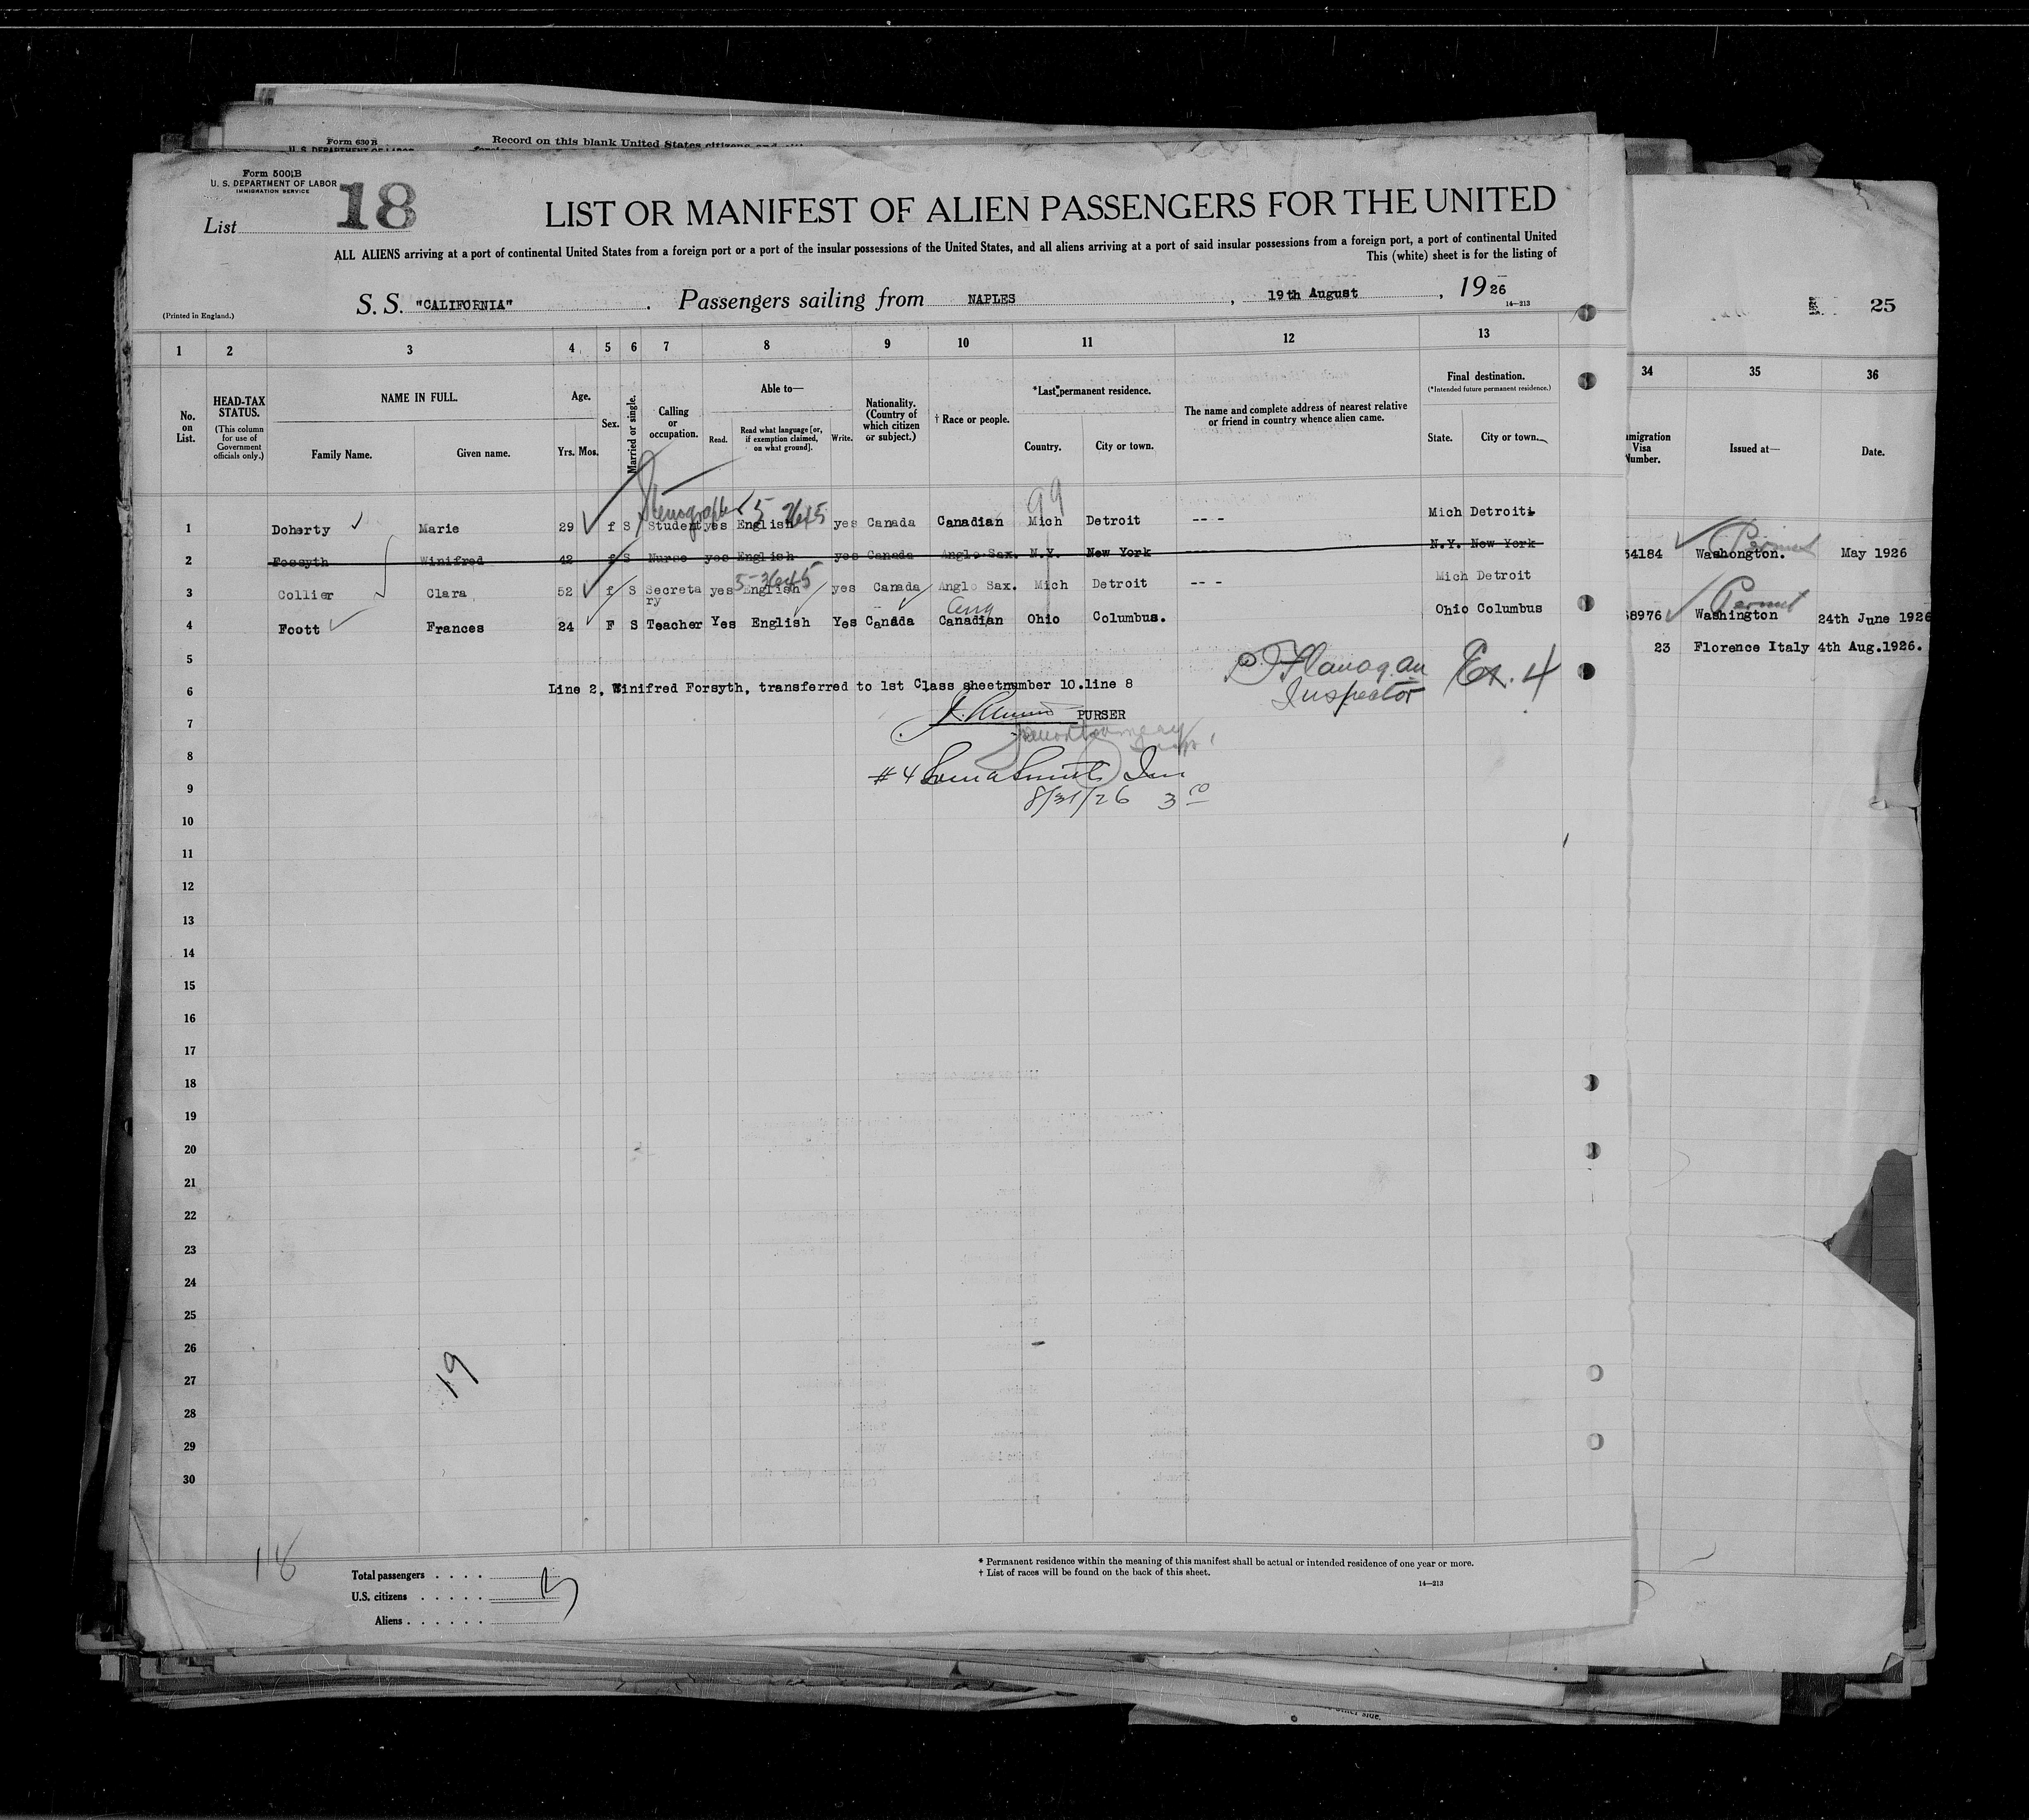 Form 630 B
Record on this blank United States citizens and
U. S. DEPARTMENT OF LABOR
Form 500 B
U. S. DEPARTMENT OF LABOR
IMMIGRATION SERVICE
List 18
LIST OR MANIFEST OF ALIEN PASSENGERS FOR THE UNITED
ALL ALIENS arriving at a port of continental United States from a foreign port or a port of the insular possessions of the United States, and all aliens arriving at a port of said insular possessions from a foreign port, a port of continental United
This (white) sheet is for the listing of
(Printed in England.)
S. S. "CALIFORNIA". Passengers sailing from NAPLES, 19th August, 1926
14—213
25
1 2 3 4 5 6 7 8 9 10 11 12 13
34 35 36
No. on List.
HEAD-TAX STATUS. (This column for use of Government officials only.)
NAME IN FULL.
Family Name. Given name.
Age.
Yrs. Mos.
Sex.
Married or single.
Calling or occupation.
Able to—
Read. Read what language [or, if exemption claimed, on what ground]. Write.
Nationality. (Country of which citizen or subject.)
† Race or people.
*Last permanent residence.
Country. City or town.
The name and complete address of nearest relative or friend in country whence alien came.
Final destination.
(*Intended future permanent residence.)
State. City or town.
migration Visa Number.
Issued at—
Date.
Stenographer 5 99
1 Doherty Marie 29 f S Student yes English yes Canada Canadian Mich Detroit -- - Mich Detroit
2 Forsyth Winifred 42 f S Nurse yes English yes Canada Anglo Sax. N.Y. New York N.Y. New York
54184 Washongton. Permit May 1926
3 Collier Clara 52 f S Secretary yes English yes Canada Anglo Sax. Mich Detroit -- - Mich Detroit
4 Foott Frances 24 F S Teacher Yes English Yes Canada Canadian Ohio Columbus. Ohio Columbus
68976 Washington Permit 24th June 1926
5
23 Florence Italy 4th Aug.1926.
6 Line 2, Winifred Forsyth, transferred to 1st Class sheetnumber 10.line 8
Flanagan Inspector Ex. 4
7 PURSER
8
#4
9 8/31/26 3
10
11
12
13
14
15
16
17
18
19
20
21
22
23
24
25
26
27
28
29
30
19
18
Total passengers
U.S. citizens
Aliens
* Permanent residence within the meaning of this manifest shall be actual or intended residence of one year or more.
† List of races will be found on the back of this sheet.
14—213